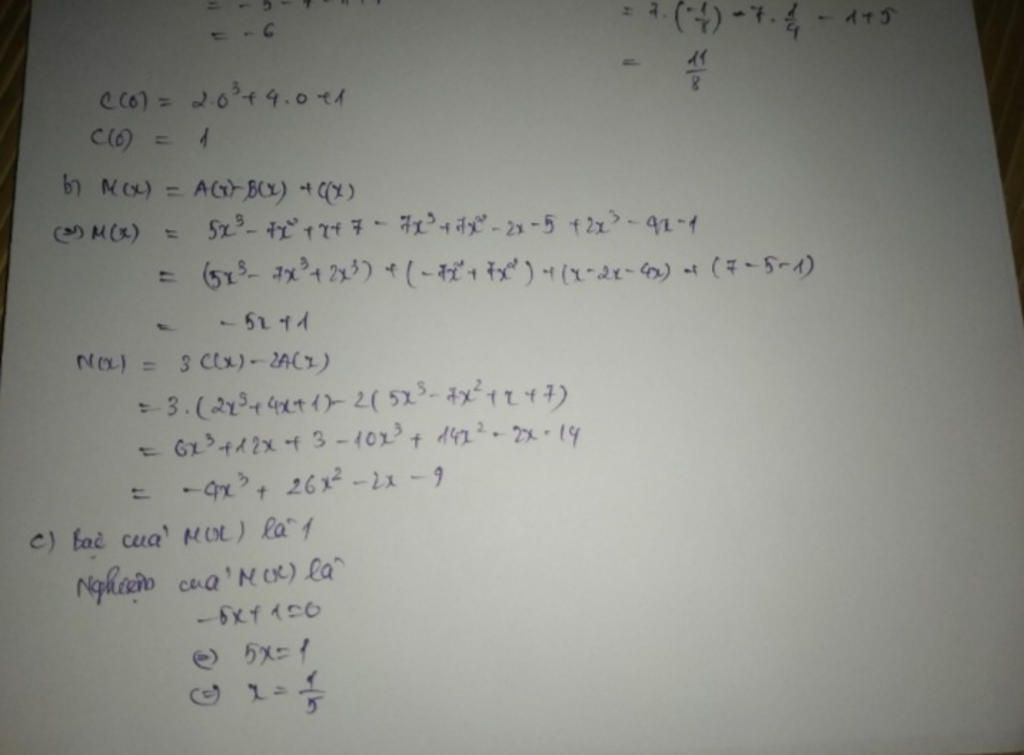 = -6
= 7.(-1/8) - 7.1/4 - 1+5
= 11/8
C(0) = 2.0³ + 4.0 +1
C(0) = 1
b) M(x) = A(x)-B(x) + C(x)
(=) M(x) = 5x³ - 7x² + x + 7 - 7x³ + 7x² - 2x - 5 + 2x³ - 4x - 1
= (5x³ - 7x³ + 2x³) + (-7x² + 7x²) + (x - 2x - 4x) + (7 - 5 - 1)
= -5x + 1
N(x) = 3C(x) - 2A(x)
= 3.(2x³ + 4x + 1) - 2(5x³ - 7x² + x + 7)
= 6x³ + 12x + 3 - 10x³ + 14x² - 2x - 14
= -4x³ + 26x² - 2x - 9
c) Bậc của M(x) là 1
Nghiệm của M(x) là
-5x + 1 = 0
(=) 5x = 1
(=) x = 1/5